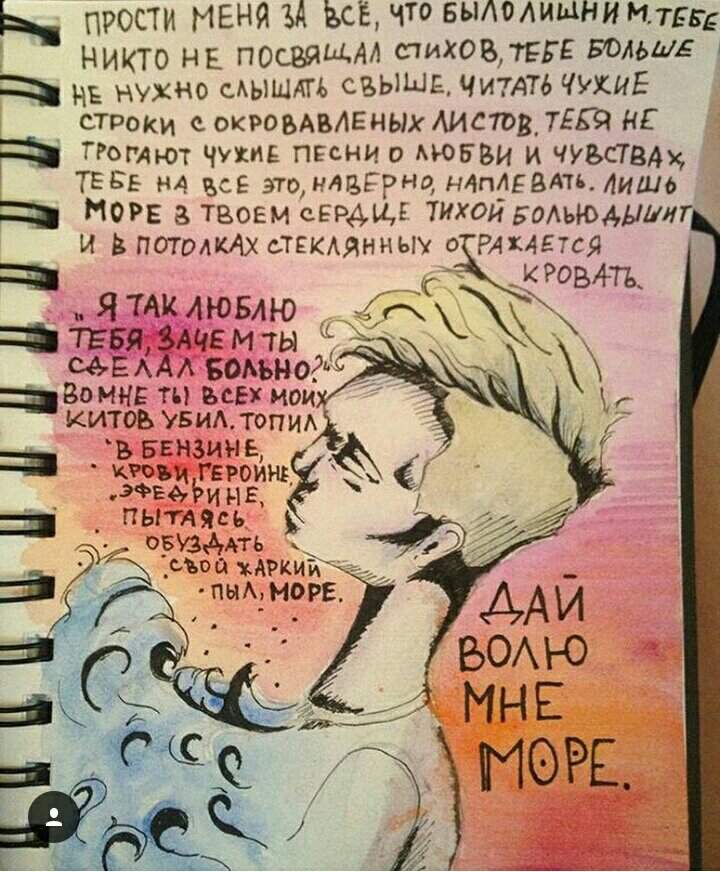 ПРОСТИ МЕНЯ ЗА ВСЁ, ЧТО БЫЛО ЛИШНИМ. ТЕБЕ
НИКТО НЕ ПОСВЯЩАЛ СТИХОВ, ТЕБЕ БОЛЬШЕ
НЕ НУЖНО СЛЫШАТЬ СВЫШЕ, ЧИТАТЬ ЧУЖИЕ
СТРОКИ С ОКРОВАВЛЕНЫХ ЛИСТОВ. ТЕБЯ НЕ
ТРОГАЮТ ЧУЖИЕ ПЕСНИ О ЛЮБВИ И ЧУВСТВАХ,
ТЕБЕ НА ВСЕ ЭТО, НАВЕРНО, НАПЛЕВАТЬ. ЛИШЬ
МОРЕ В ТВОЕМ СЕРДЦЕ ТИХОЙ БОЛЬЮ ДЫШИТ
И В ПОТОЛКАХ СТЕКЛЯННЫХ ОТРАЖАЕТСЯ
КРОВАТЬ.
„Я ТАК ЛЮБЛЮ
ТЕБЯ, ЗАЧЕМ ТЫ
СДЕЛАЛ БОЛЬНО?"
ВО МНЕ ТЫ ВСЕХ МОИХ
КИТОВ УБИЛ. ТОПИЛ
В БЕНЗИНЕ,
КРОВИ, ГЕРОИНЕ,
ЭФЕДРИНЕ,
ПЫТАЯСЬ
ОБУЗДАТЬ
СВОЙ ЖАРКИЙ
ПЫЛ, МОРЕ.
ДАЙ
ВОЛЮ
МНЕ
МОРЕ.